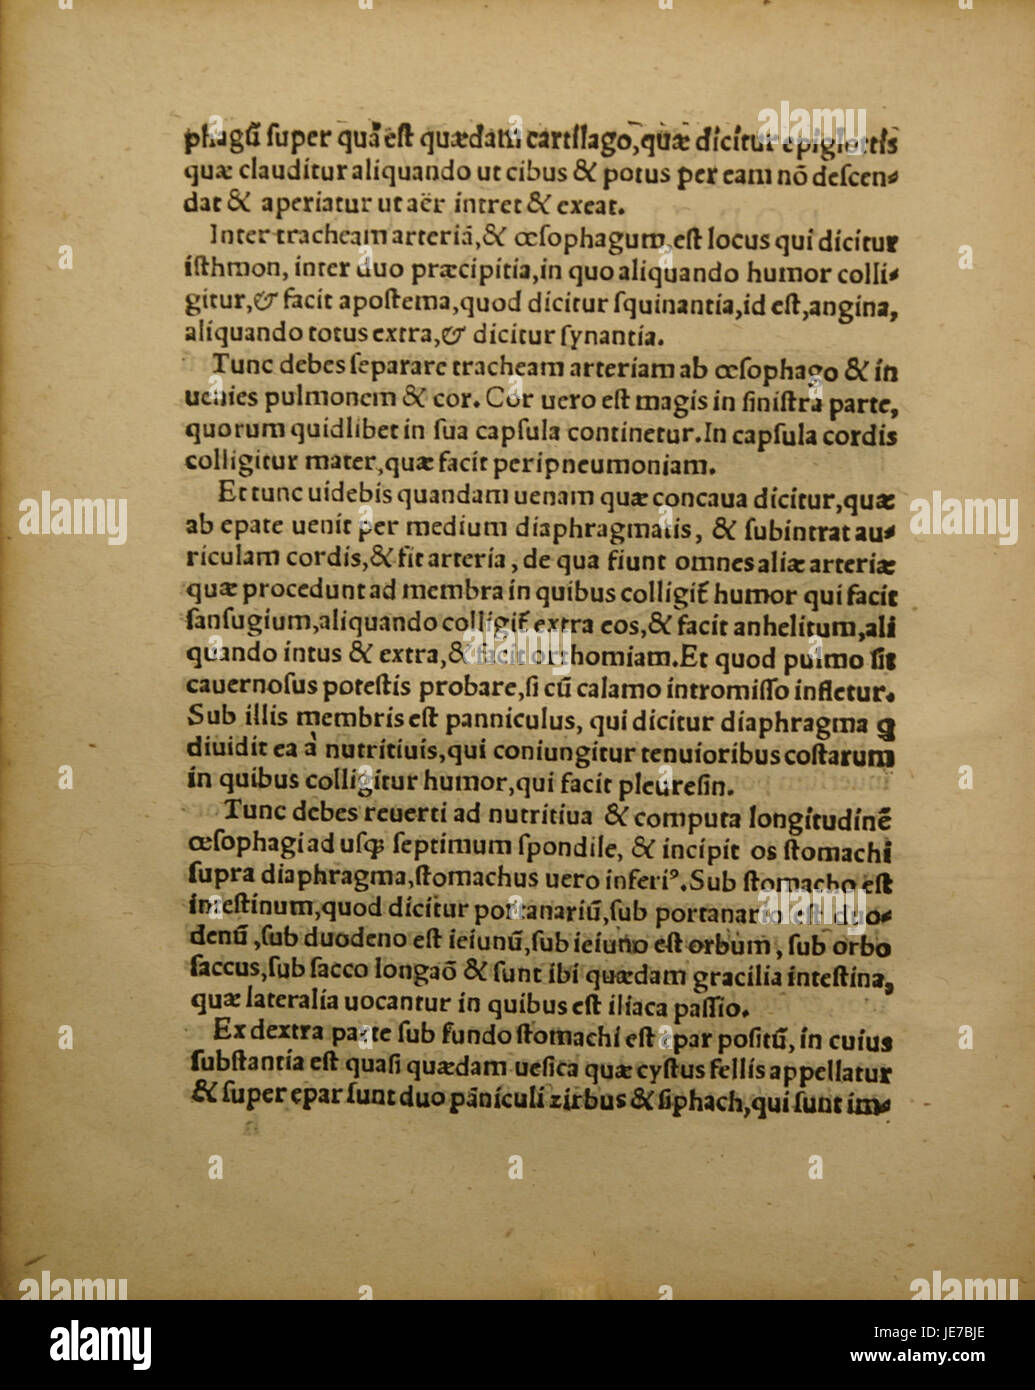 phagū ſuper quā eſt quædam cartilago, quæ dicitur epiglottis
quæ clauditur aliquando ut cibus & potus per eam nō deſcen-
dat & aperiatur ut aër intret & exeat.
Inter tracheam arteriā, & œſophagum, eſt locus qui dicitur
iſthmon, inter duo præcipitia, in quo aliquando humor colli-
gitur, & facit apoſtema, quod dicitur ſquinantia, id eſt, angina,
aliquando totus extra, & dicitur ſynantia.
Tunc debes ſeparare tracheam arteriam ab œſophago & in
uenies pulmonem & cor. Cor uero eſt magis in ſiniſtra parte,
quorum quidlibet in ſua capſula continetur. In capſula cordis
colligitur mater, quæ facit peripneumoniam.
Et tunc uidebis quandam uenam quæ concaua dicitur, quæ
ab epate uenit per medium diaphragmatis, & ſubintrat au-
riculam cordis, & fit arteria, de qua fiunt omnes aliæ arteriæ
quæ procedunt ad membra in quibus colligit̃ humor qui facit
ſanſugium, aliquando colligit̃ extra eos, & facit anhelitum, ali
quando intus & extra, & facit orthomiam. Et quod pulmo ſit
cauernoſus poteſtis probare, ſi cū calamo intromiſſo infletur.
Sub illis membris eſt panniculus, qui dicitur diaphragma q̨
diuidit ea à nutritiuis, qui coniungitur tenuioribus coſtarum
in quibus colligitur humor, qui facit pleureſin.
Tunc debes reuerti ad nutritiua & computa longitudinē
œſophagi ad uſq̨ ſeptimum ſpondile, & incipit os ſtomachi
ſupra diaphragma, ſtomachus uero inferiꝰ. Sub ſtomacho eſt
inteſtinum, quod dicitur portanariū, ſub portanario eſt duo-
denū, ſub duodeno eſt ieiunū, ſub ieiuno eſt orbum, ſub orbo
ſaccus, ſub ſacco longaō & ſunt ibi quædam gracilia inteſtina,
quæ lateralia uocantur in quibus eſt iliaca paſſio.
Ex dextra parte ſub fundo ſtomachi eſt epar poſitū, in cuius
ſubſtantia eſt quaſi quædam ueſica quæ cyſtus fellis appellatur
& ſuper epar ſunt duo pāniculi zirbus & ſiphach, qui ſunt im-
alamy
Image ID: JE7BJE
www.alamy.com